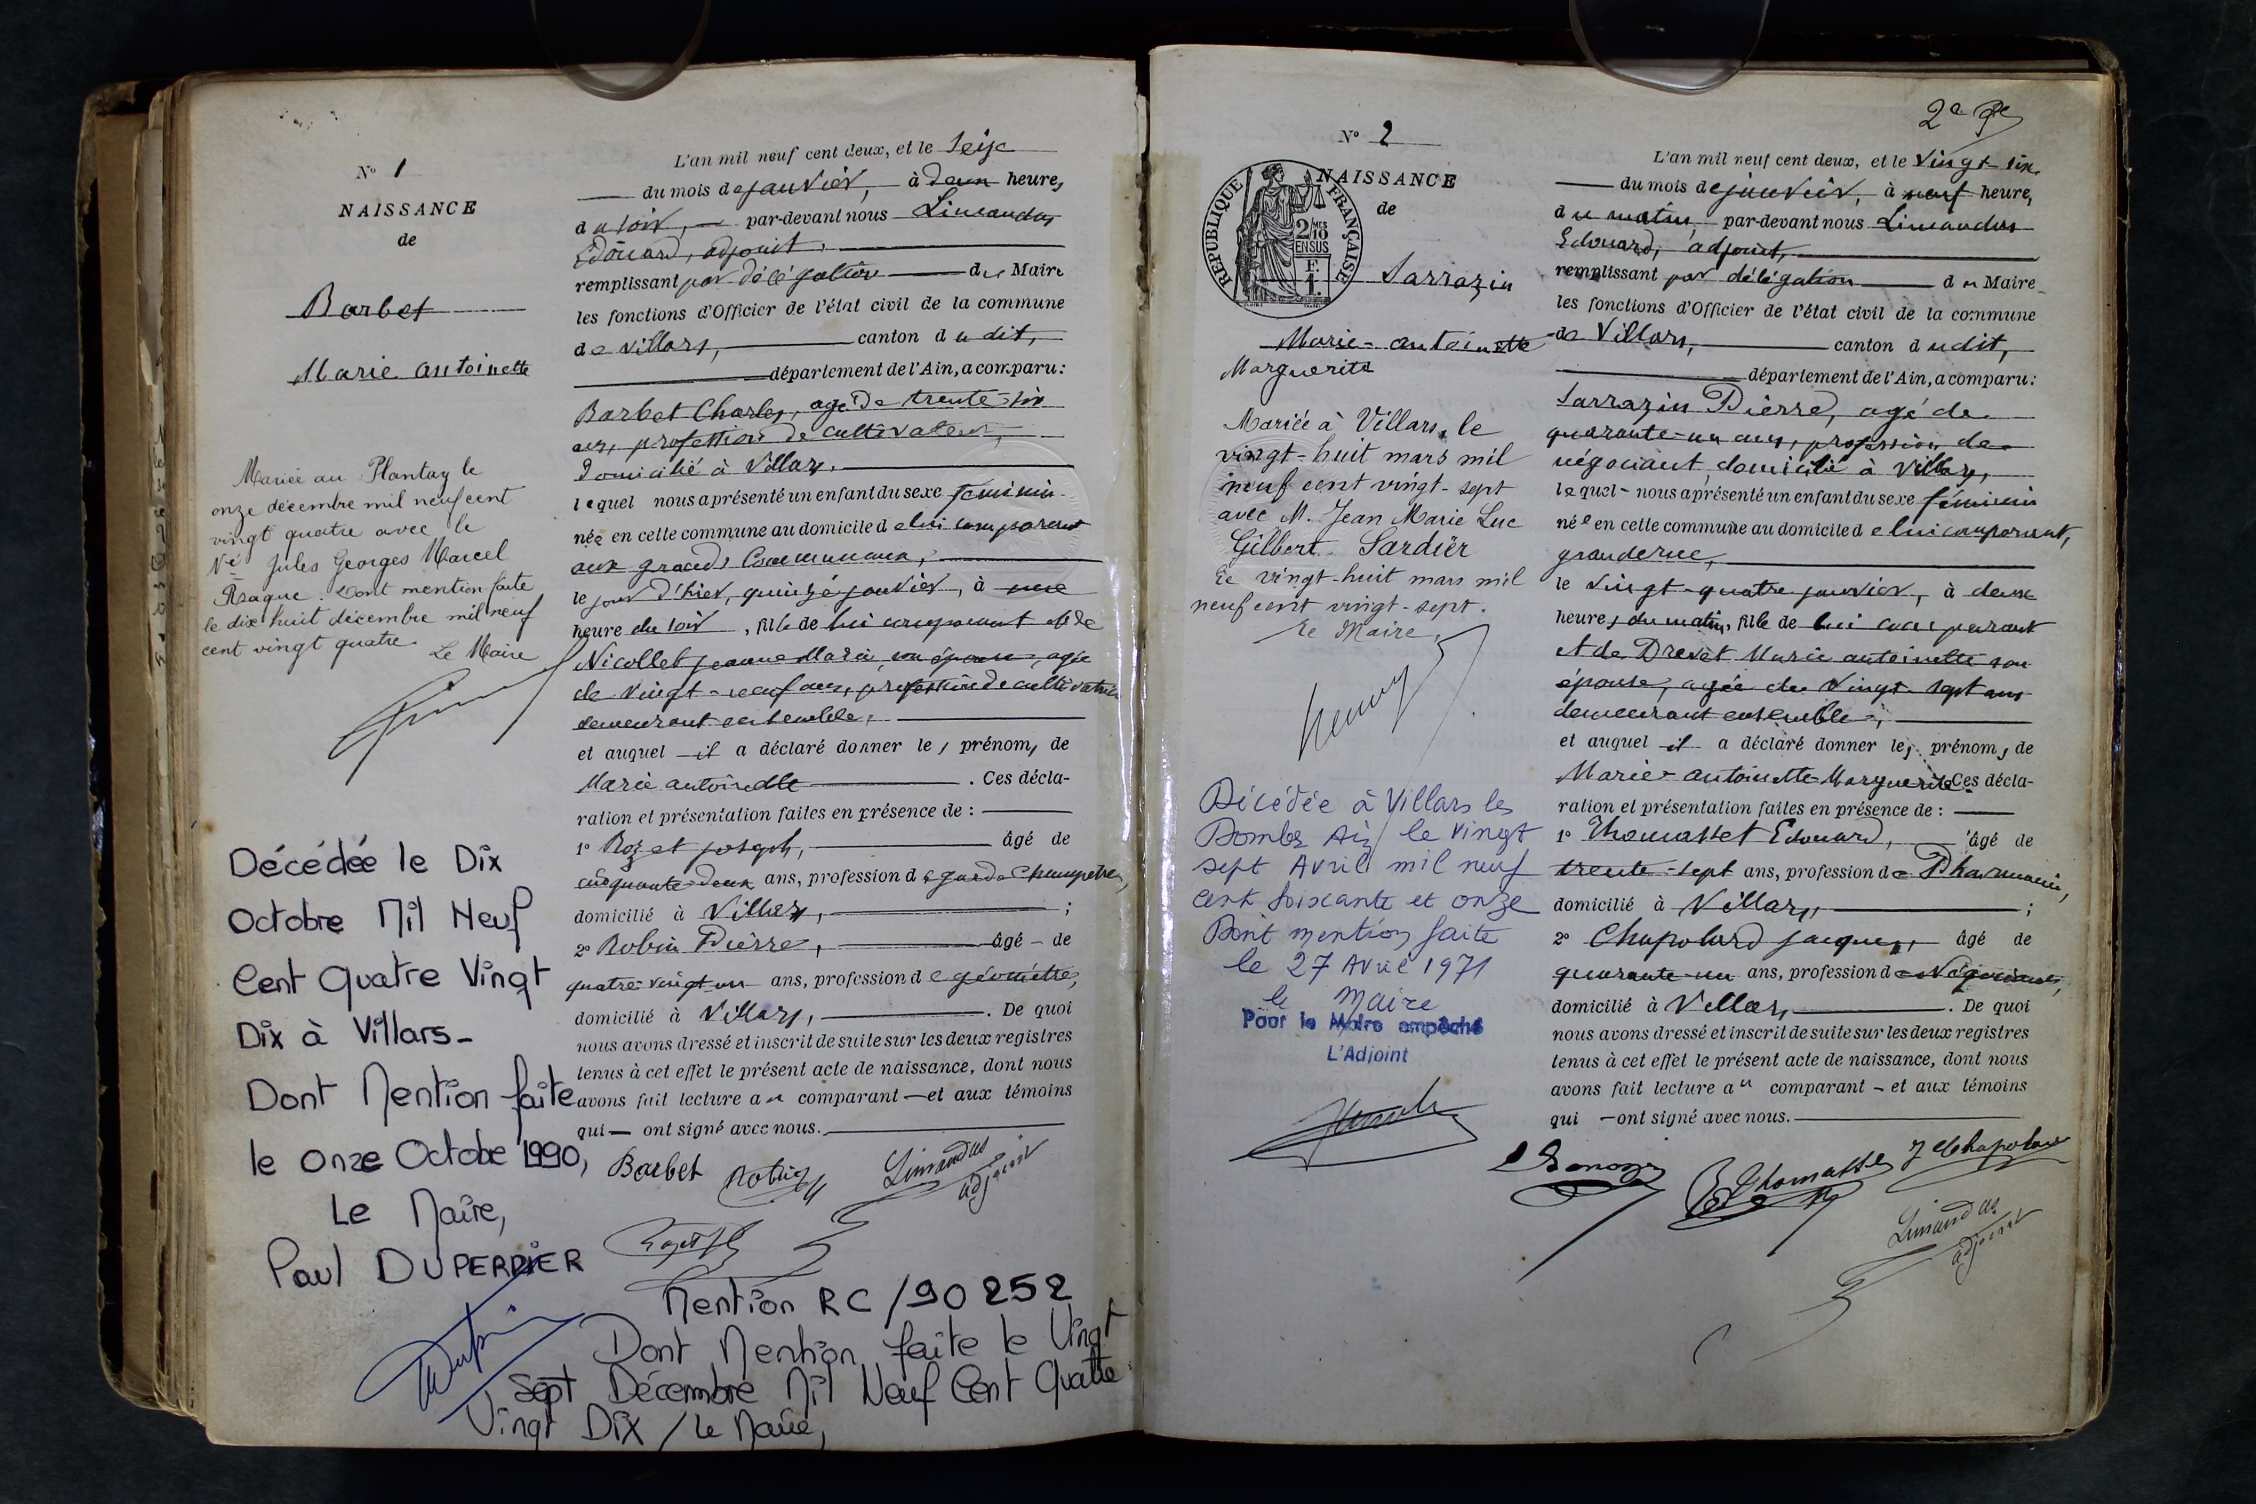 N° 1
NAISSANCE
de
Barbet
Marie antoinette
Mariée au Plantay le
onze décembre mil neuf cent
vingt quatre avec le
Jules Georges Marcel
Dont mention faite
le dix huit décembre mil neuf
cent vingt quatre
Le Maire
Décédée le Dix
Octobre Mil Neuf
Cent Quatre Vingt
Dix à Villars-
Dont Mention faite
le Onze Octobre 1990,
Le Maire,
Paul DUPERDIER
L'an mil neuf cent deux, et le seize
du mois de janvier, à deux heure,
du soir, par-devant nous Limandas
Edouard, adjoint,
remplissant par délégation du Maire
les fonctions d'Officier de l'état civil de la commune
de Villars, canton dudit,
département de l'Ain, a comparu:
Barbet Charles, agé de trente-six
ans, profession de cultivateur,
domicilié à Villars,
lequel nous a présenté un enfant du sexe féminin
née en cette commune au domicile de lui comparant
aux grands Communaux,
le jour d'hier, quinze janvier, à une
heure du soir, fille de lui comparant et de
Nicollet jeanne Marie, son épouse, agée
de vingt-neuf ans, profession de cultivatrice
demeurant ensemble,
et auquel il a déclaré donner les prénoms de
Marie antoinette. Ces décla-
ration et présentation faites en présence de :
1° Rozet joseph, âgé de
cinquante-deux ans, profession de garde champêtre,
domicilié à Villars, ;
2° Robin Pierre, âgé de
quatre-vingt-un ans, profession de géomètre,
domicilié à Villars, . De quoi
nous avons dressé et inscrit de suite sur les deux registres
tenus à cet effet le présent acte de naissance, dont nous
avons fait lecture au comparant et aux témoins
qui ont signé avec nous.
Barbet Robin Limandas
adjoint
Mention RC /90 252
Dont Mention faite le Vingt
Sept Décembre Mil Neuf Cent Quatre
Vingt Dix / Le Maire,
2e
N° 2
NAISSANCE
de
RÉPUBLIQUE FRANÇAISE
2/10MES
EN SUS
F.
1.
Sarrazin
Marie-antoinette
Marguerite
Mariée à Villars, le
vingt-huit mars mil
neuf cent vingt-sept
avec M. Jean Marie Luc
Gilbert Sardier
Le vingt-huit mars mil
neuf cent vingt-sept.
Le Maire,
Décédée à Villars les
Dombes Ain le vingt
sept Avril mil neuf
cent soixante et onze
Dont mention faite
le 27 Avril 1971
le Maire
Pour le Maire empêché
L'Adjoint
L'an mil neuf cent deux, et le vingt-six
du mois de janvier, à neuf heure,
du matin, par-devant nous Limandas
Edouard, adjoint,
remplissant par délégation du Maire
les fonctions d'Officier de l'état civil de la commune
de Villars, canton dudit,
département de l'Ain, a comparu:
Sarrazin Pierre, agé de
quarante-un ans, profession de
négociant, domicilié à Villars,
lequel nous a présenté un enfant du sexe féminin
née en cette commune au domicile de lui comparant,
grande rue,
le vingt-quatre janvier, à deux
heures du matin, fille de lui comparant
et de Drevet Marie antoinette son
épouse, agée de vingt-sept ans
demeurant ensemble,
et auquel il a déclaré donner les prénoms de
Marie-antoinette-Marguerite. Ces décla-
ration et présentation faites en présence de :
1° Thomasset Edouard, âgé de
trente-sept ans, profession de Pharmacien,
domicilié à Villars, ;
2° Chapolard jacques, âgé de
quarante-un ans, profession de Négociant,
domicilié à Villars, . De quoi
nous avons dressé et inscrit de suite sur les deux registres
tenus à cet effet le présent acte de naissance, dont nous
avons fait lecture au comparant et aux témoins
qui ont signé avec nous.
Thomasset J Chapolard
Limandas
adjoint